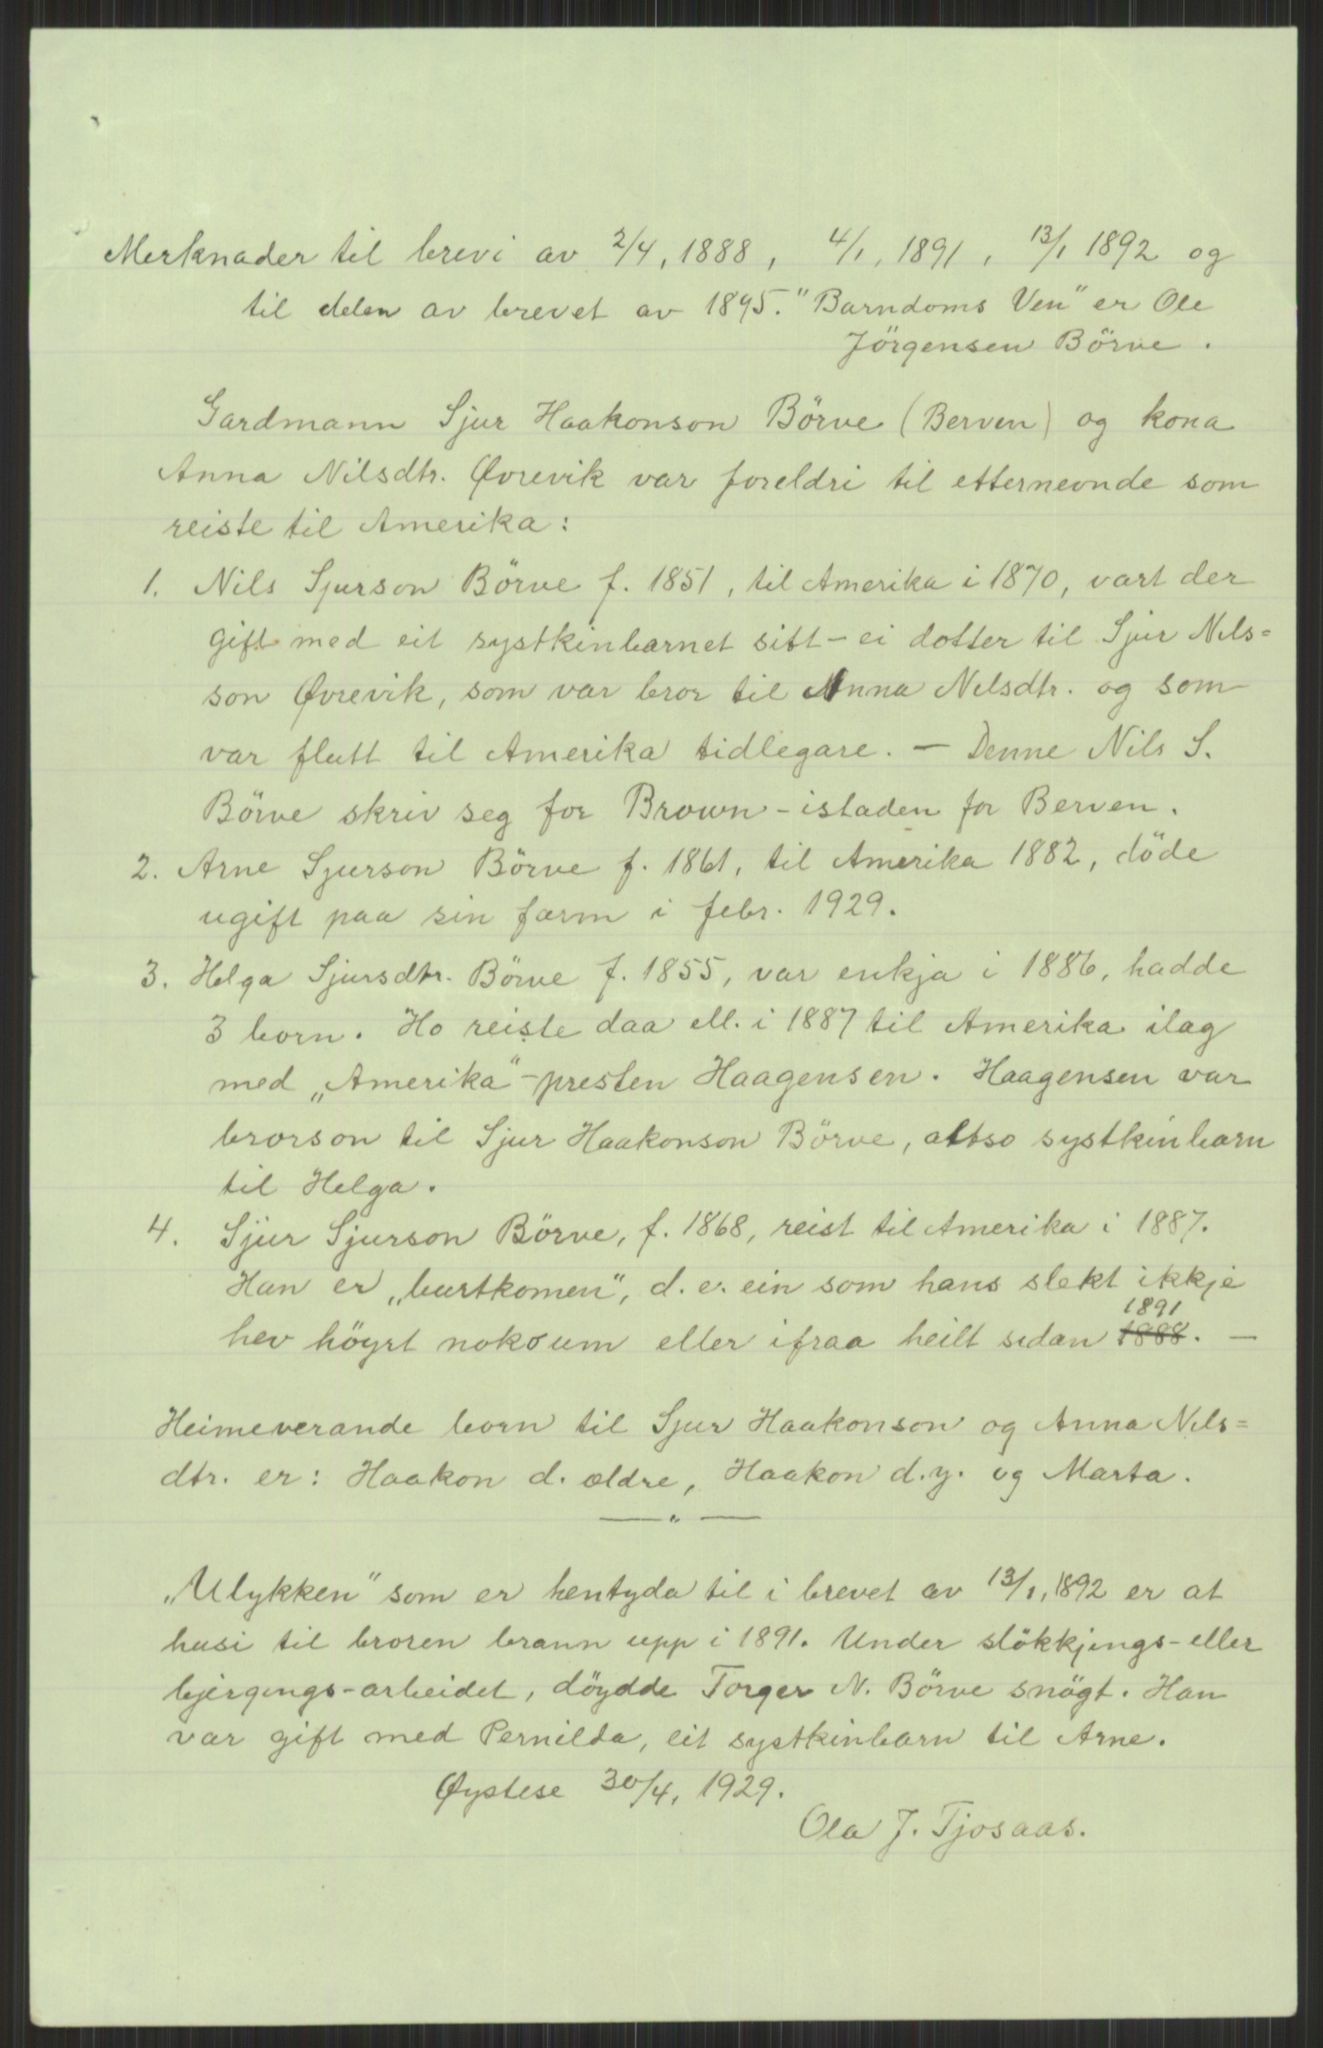 Merknader til brevi av 2/4, 1888, 4/1, 1891, 13/1 1892 og
til delen av brevet av 1895. "Barndoms Ven" er Ole
Jörgensen Börve.
Gardmann Sjur Haakonson Börve (Berven) og kona
Anna Nilsdtr. Øvrevik var foreldri til etternevnde som
reiste til Amerika:
1. Nils Sjurson Börve f. 1851, til Amerika i 1870, vart der
gift med eit systkinbarnet sitt - ei dotter til Sjur Nils=
son Øvrevik, som var bror til Anna Nilsdtr. og som
var flutt til Amerika tidlegare. — Denne Nils S.
Börve skriv seg for Brown - istaden for Berven.
2. Arne Sjurson Börve f. 1861, til Amerika 1882, döde
ugift paa sin farm i febr. 1929.
3. Helga Sjursdtr. Börve f. 1855, var enkja i 1886, hadde
3 born. Ho reiste daa ell. i 1887 til Amerika ilag
med „Amerika"-presten Haagensen. Haagensen var
brorson til Sjur Haakonson Börve, altso systkinbarn
til Helga.
4. Sjur Sjurson Börve, f. 1868, reist til Amerika i 1887.
Han er „burtkomen", d. e. ein som hans slekt ikkje
1891
hev höyrt noko um eller ifraa heilt sidan 1888. —
Heimeverande born til Sjur Haakonson og Anna Nils=
dtr. er: Haakon d. eldre, Haakon d.y. og Marta.
— " —
„Ulykken" som er hentyda til i brevet av 13/1, 1892 er at
husi til broren brann upp i 1891. Under slökkjings- eller
bjergings-arbeidet, döydde Torger N. Börve snögt. Han
var gift med Pernilda, eit systkinbarn til Arne.
Øystese 30/4, 1929.
Ola J. Tjosaas.